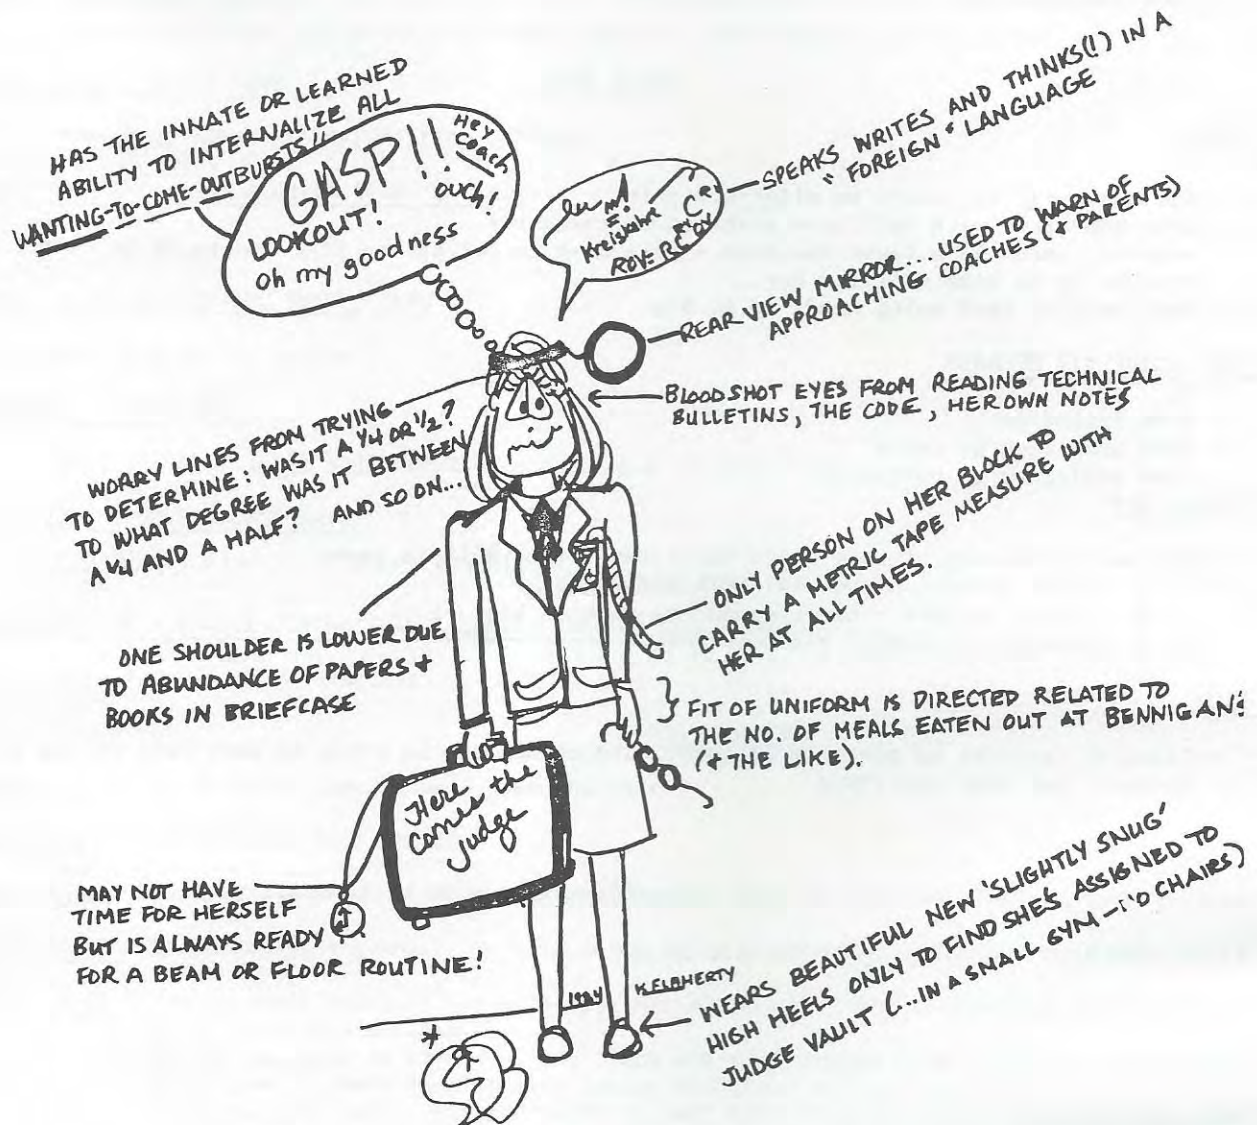 HAS THE INNATE OR LEARNED
ABILITY TO INTERNALIZE ALL
WANTING-TO-COME-OUTBURSTS!!
GASP!!
Hey
Coach
LOOKOUT!
ouch!
oh my goodness
Kreiskehre
ROV=RC
SPEAKS WRITES AND THINKS(!) IN A
"FOREIGN" LANGUAGE
REAR VIEW MIRROR... USED TO WARN OF
APPROACHING COACHES (+ PARENTS)
BLOODSHOT EYES FROM READING TECHNICAL
BULLETINS, THE CODE, HER OWN NOTES
WORRY LINES FROM TRYING
TO DETERMINE: WAS IT A 1/4 OR 1/2?
TO WHAT DEGREE WAS IT BETWEEN
A 1/4 AND A HALF? AND SO ON...
ONLY PERSON ON HER BLOCK TO
CARRY A METRIC TAPE MEASURE WITH
HER AT ALL TIMES.
ONE SHOULDER IS LOWER DUE
TO ABUNDANCE OF PAPERS +
BOOKS IN BRIEFCASE
FIT OF UNIFORM IS DIRECTED RELATED TO
THE NO. OF MEALS EATEN OUT AT BENNIGAN'S
(+ THE LIKE).
Here
comes the
judge
MAY NOT HAVE
TIME FOR HERSELF
BUT IS ALWAYS READY
FOR A BEAM OR FLOOR ROUTINE!
WEARS BEAUTIFUL NEW 'SLIGHTLY SNUG'
HIGH HEELS ONLY TO FIND SHE'S ASSIGNED TO
JUDGE VAULT (...IN A SMALL GYM - NO CHAIRS)
1984 K. FLAHERTY